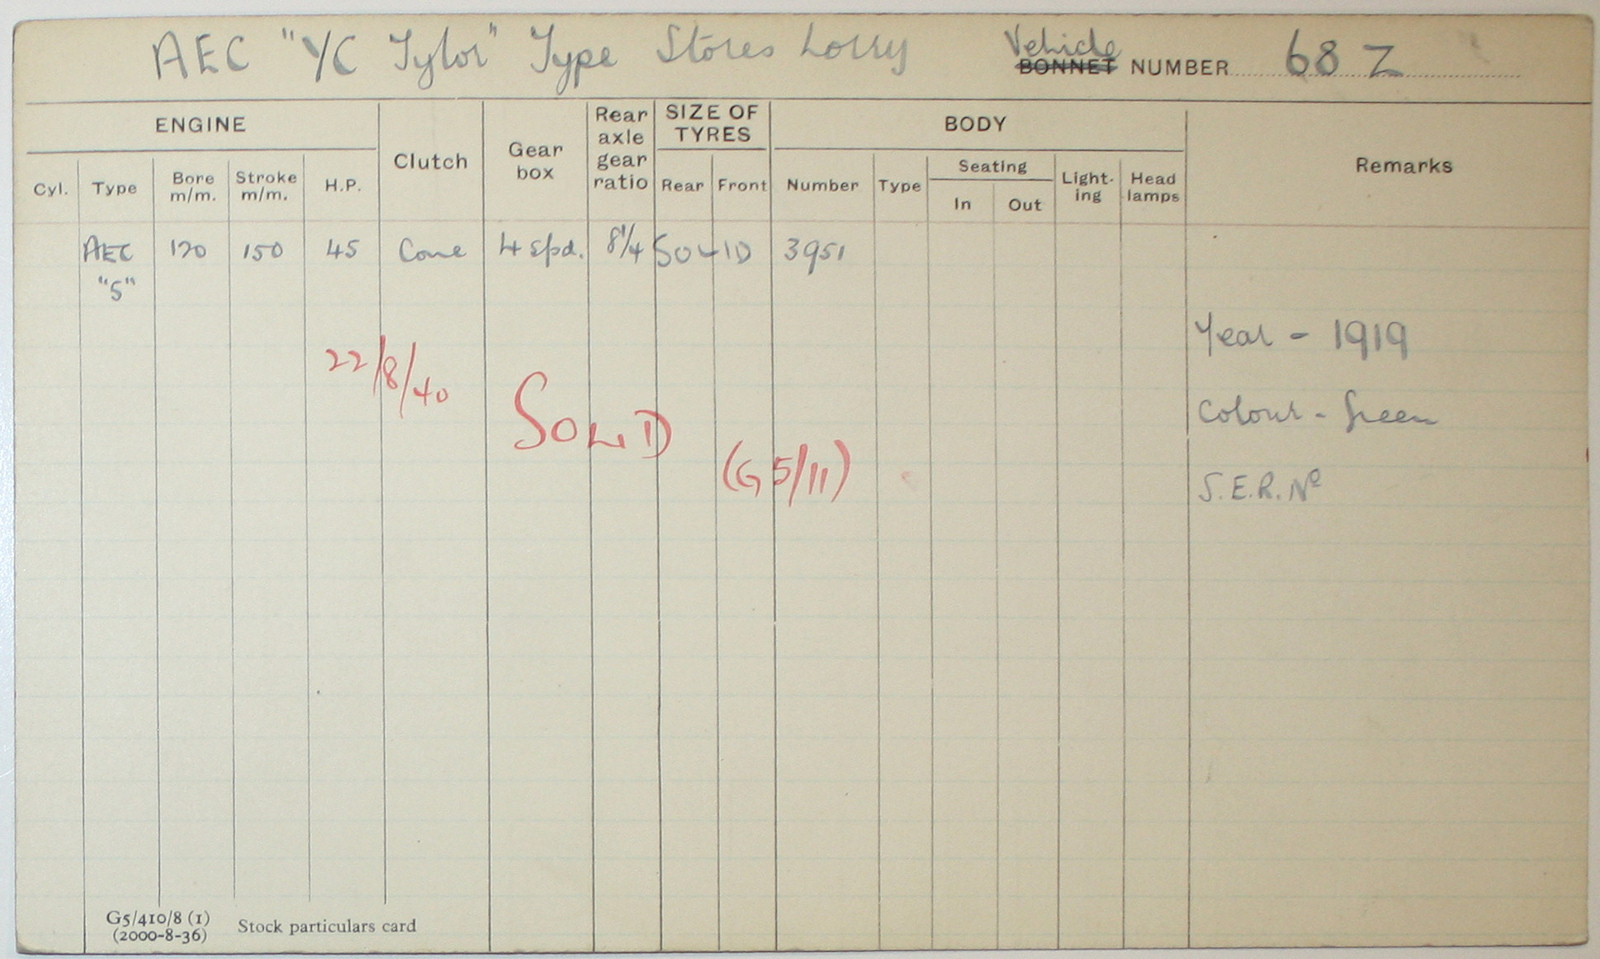 AEC "YC Tylor" Type Stores Lorry Vehicle BONNET NUMBER 68 Z
ENGINE Clutch Gear box Rear axle gear ratio SIZE OF TYRES BODY Remarks
Cyl. Type Bore m/m. Stroke m/m. H.P. Rear Front Number Type Seating In Out Light-ing Head lamps
AEC 120 150 45 Cone 4 spd. 8¼ SOLID 3951
"S"
Year - 1919
22/8/40
Colour - Green
SOLD
(G 5/11)
S.E.R. No
G5/410/8 (1)
(2000-8-36) Stock particulars card